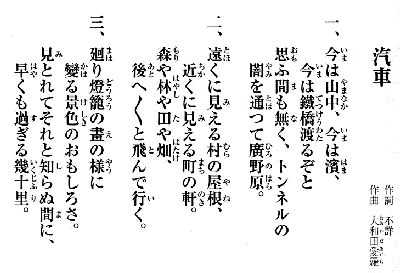 汽車
作詞 不詳
作曲 大和田愛羅
一、今は山中、今は濱、
今は鐵橋渡るぞと
思ふ間も無く、トンネルの
闇を通つて廣野原。
二、遠くに見える村の屋根、
近くに見える町の軒。
森や林や田や畑、
後へ〳〵と飛んで行く。
三、廻り燈籠の畫の樣に
變る景色のおもしろさ。
見とれてそれと知らぬ間に、
早くも過ぎる幾十里。